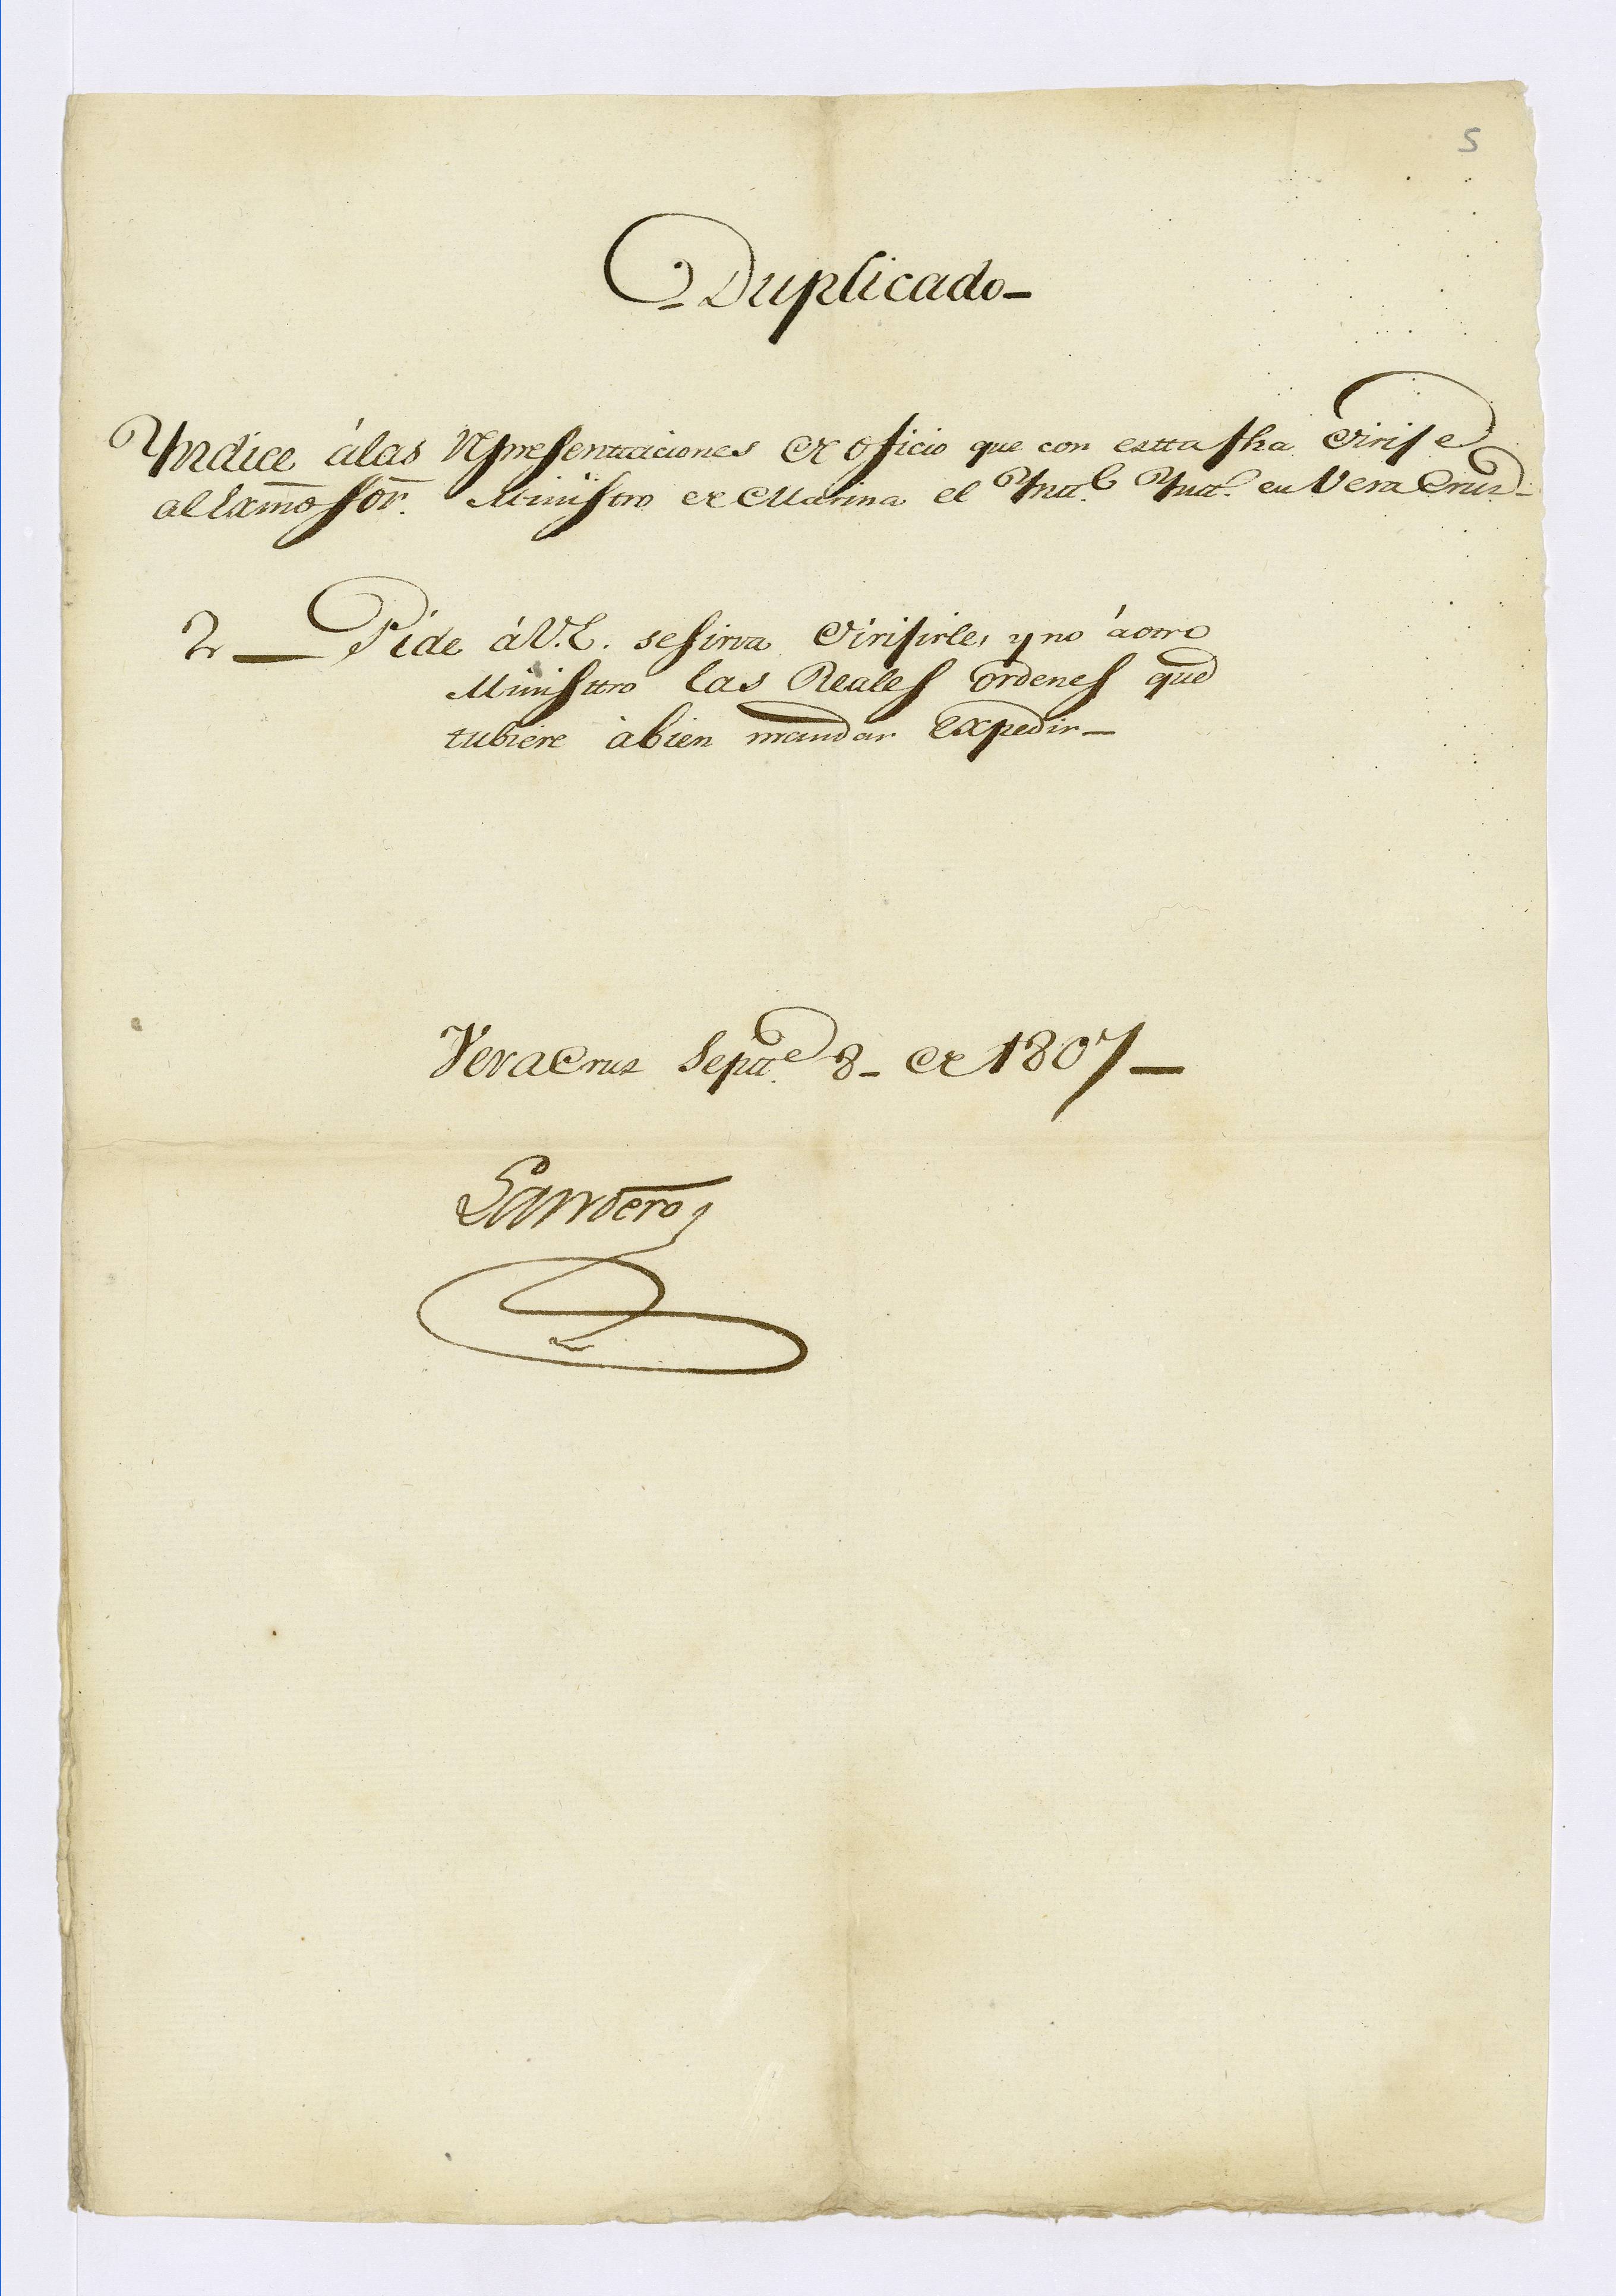 5
Duplicado-
Yndice àlas Representtaciones de oficio que con estta fha dirije
al Exmo Sor. Ministro de Marina el Yntte. Yntt.º en Vera Cruz-
2— Pide áV.E. sesirva dirijirle, y no á otro
Ministtro las Reales ordenes que
tubiere àbien mandar expedir-
VeraCruz Septte. 8- de 1807—
Landero